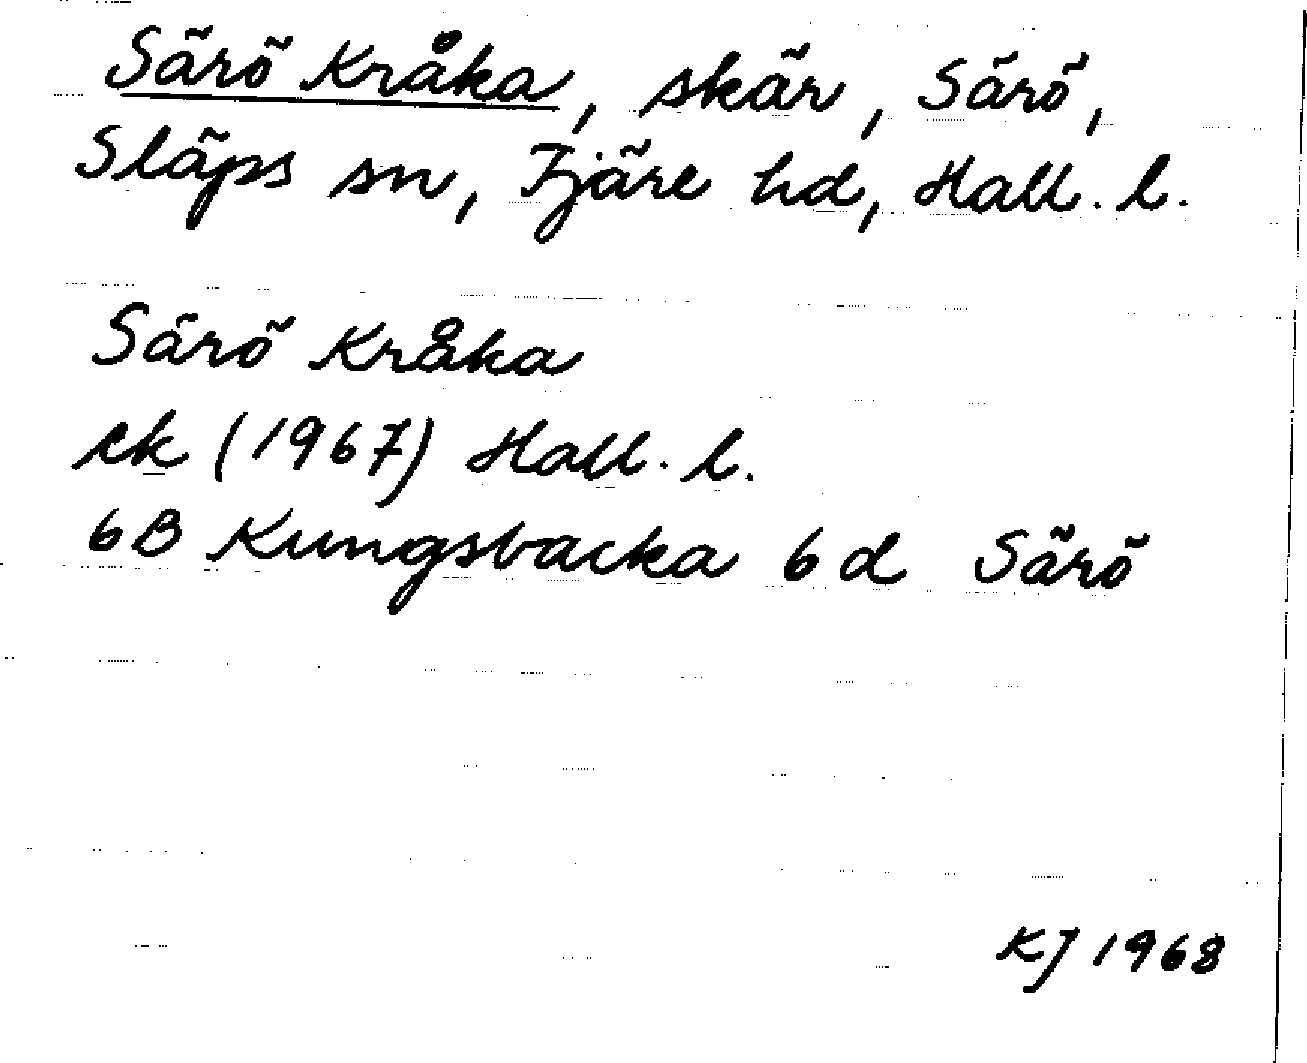 Särö Kråka, skär, Särö,
Släps sn, Fjäre hd, Hall. l.
Särö Kråka
ek (1967) Hall. l.
6B Kungsbacka 6 d Särö
KJ 1968